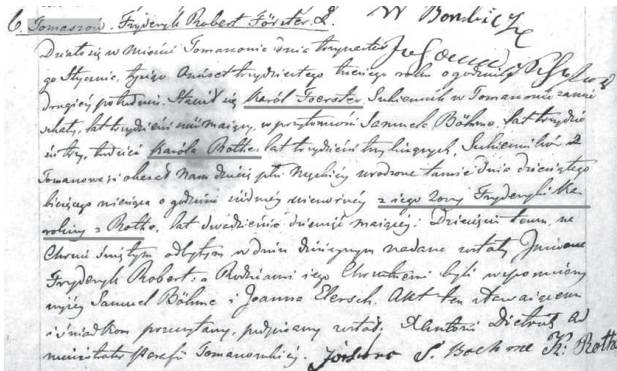 6 Tomaszów. Fryderyk Robert Förster. W Bombicz
Działo się w Mieście Tomaszowie dnia trzynaste
go Stycznia, tysiąc Ośmset trzydziestego trzeciego roku o godzinie
drugiey popołudniu. Stawił się Karól Foerster Sukiennik w Tomaszowie zamie
szkały, lat trzydzieści maiący, w przytomności Samuela Böhme, lat trzydzie
ści trzy, tudzież Karola Rothe, lat trzydzieści trzy liczących, Sukienników z
Tomaszowa, i okazał Nam dziecię płci Męzkiey urodzone tamże dnia dziesiątego
bieżącego miesiąca o godzinie siódmey wieczorney z iego żony Fryderyki Ka
roliny z Rothe, lat dwadzieścia dziewięć maiącey. Dziecięciu temu, na
Chrzcie świętym odbytym w dniu dzisieyszym nadane zostały Imiona
Fryderyk Robert, a Rodzicami iego Chrzestnemi byli wspomniony
wyżey Samuel Böhme i Joanna Elersch. Akt ten stawaiącemu
i świadkom przeczytany, podpisany został. X Antoni Dietrich Ad
ministrator Parafii Tomaszowskiey. S. Boehme K: Rothe